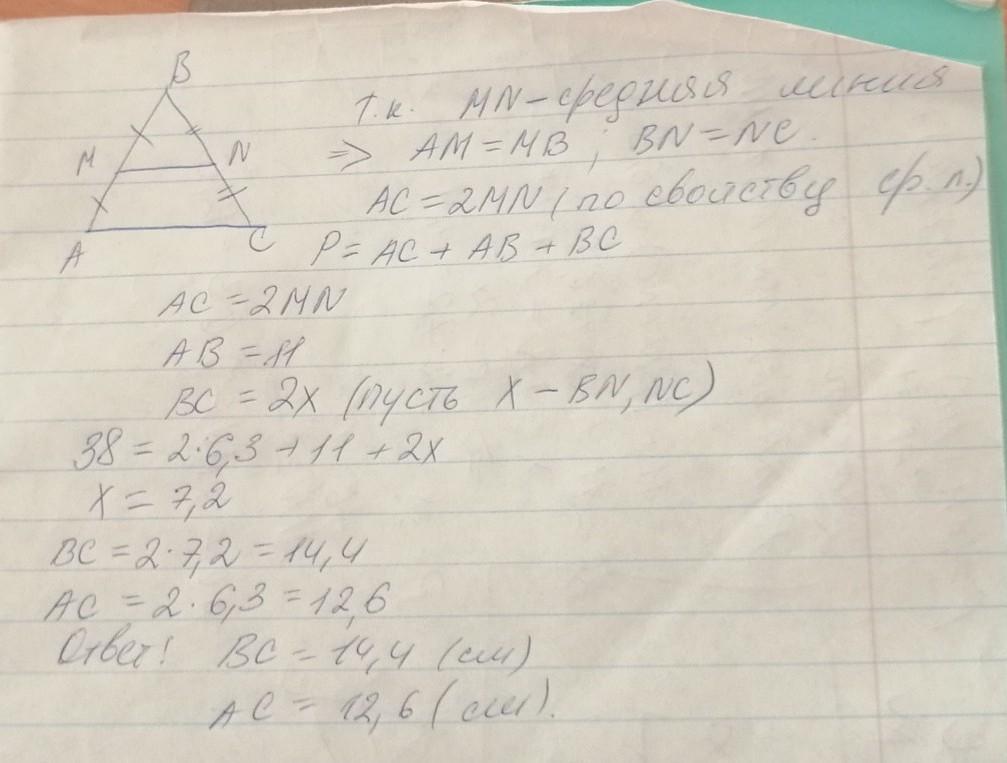 B
M
N
A
C
Т.к. MN-средняя линия
=> AM = MB ; BN = NC.
AC = 2MN (по свойству ср. л.)
P = AC + AB + BC
AC = 2MN
AB = 11
BC = 2x (пусть x - BN, NC)
38 = 2·6,3 + 11 + 2x
x = 7,2
BC = 2·7,2 = 14,4
AC = 2·6,3 = 12,6
Ответ! BC = 14,4 (см)
AC = 12,6 (см).